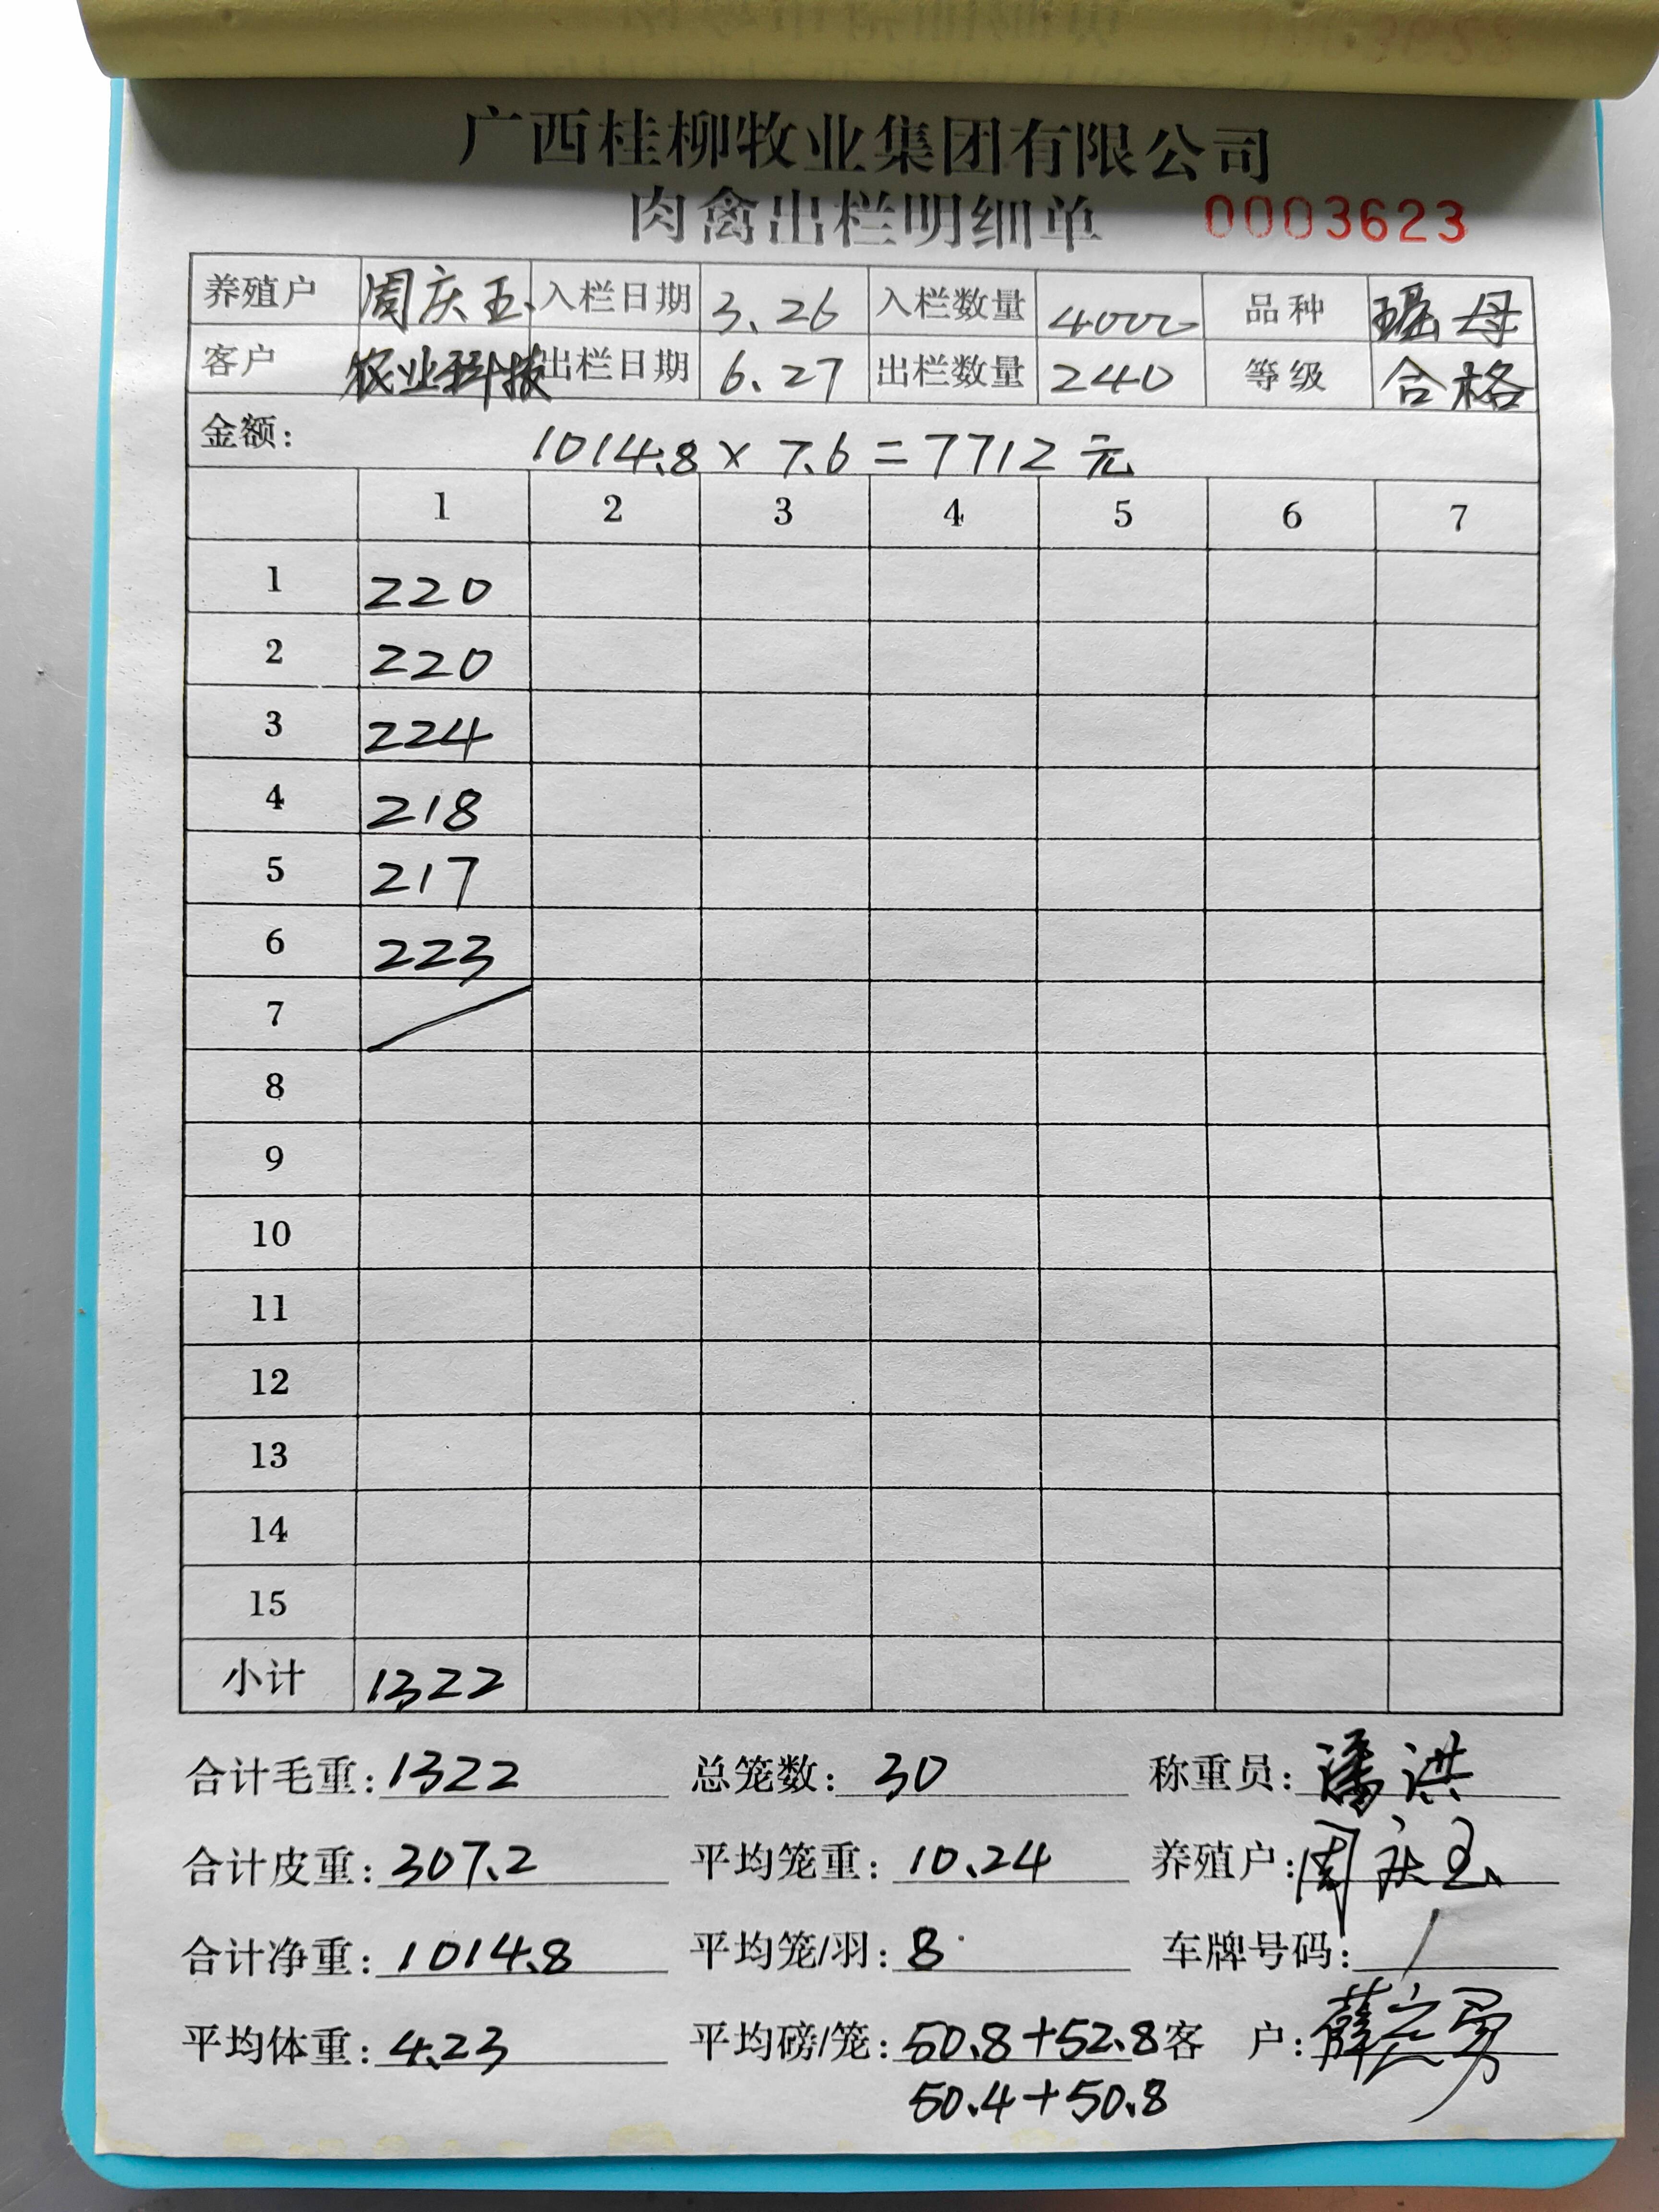 广西桂柳牧业集团有限公司
肉禽出栏明细单 0003623
养殖户 周庆玉 入栏日期 3.26 入栏数量 4000 品种 瑶母
客户 农业科技 出栏日期 6.27 出栏数量 240 等级 合格
金额: 1014.8×7.6=7712元
1 2 3 4 5 6 7
1 220
2 220
3 224
4 218
5 217
6 223
7
8
9
10
11
12
13
14
15
小计 1322
合计毛重: 1322 总笼数: 30 称重员: 潘洪
合计皮重: 307.2 平均笼重: 10.24 养殖户: 周庆玉
合计净重: 1014.8 平均笼/羽: 8 车牌号码: /
平均体重: 4.23 平均磅/笼: 50.8+52.8 客户: 薛
50.4+50.8